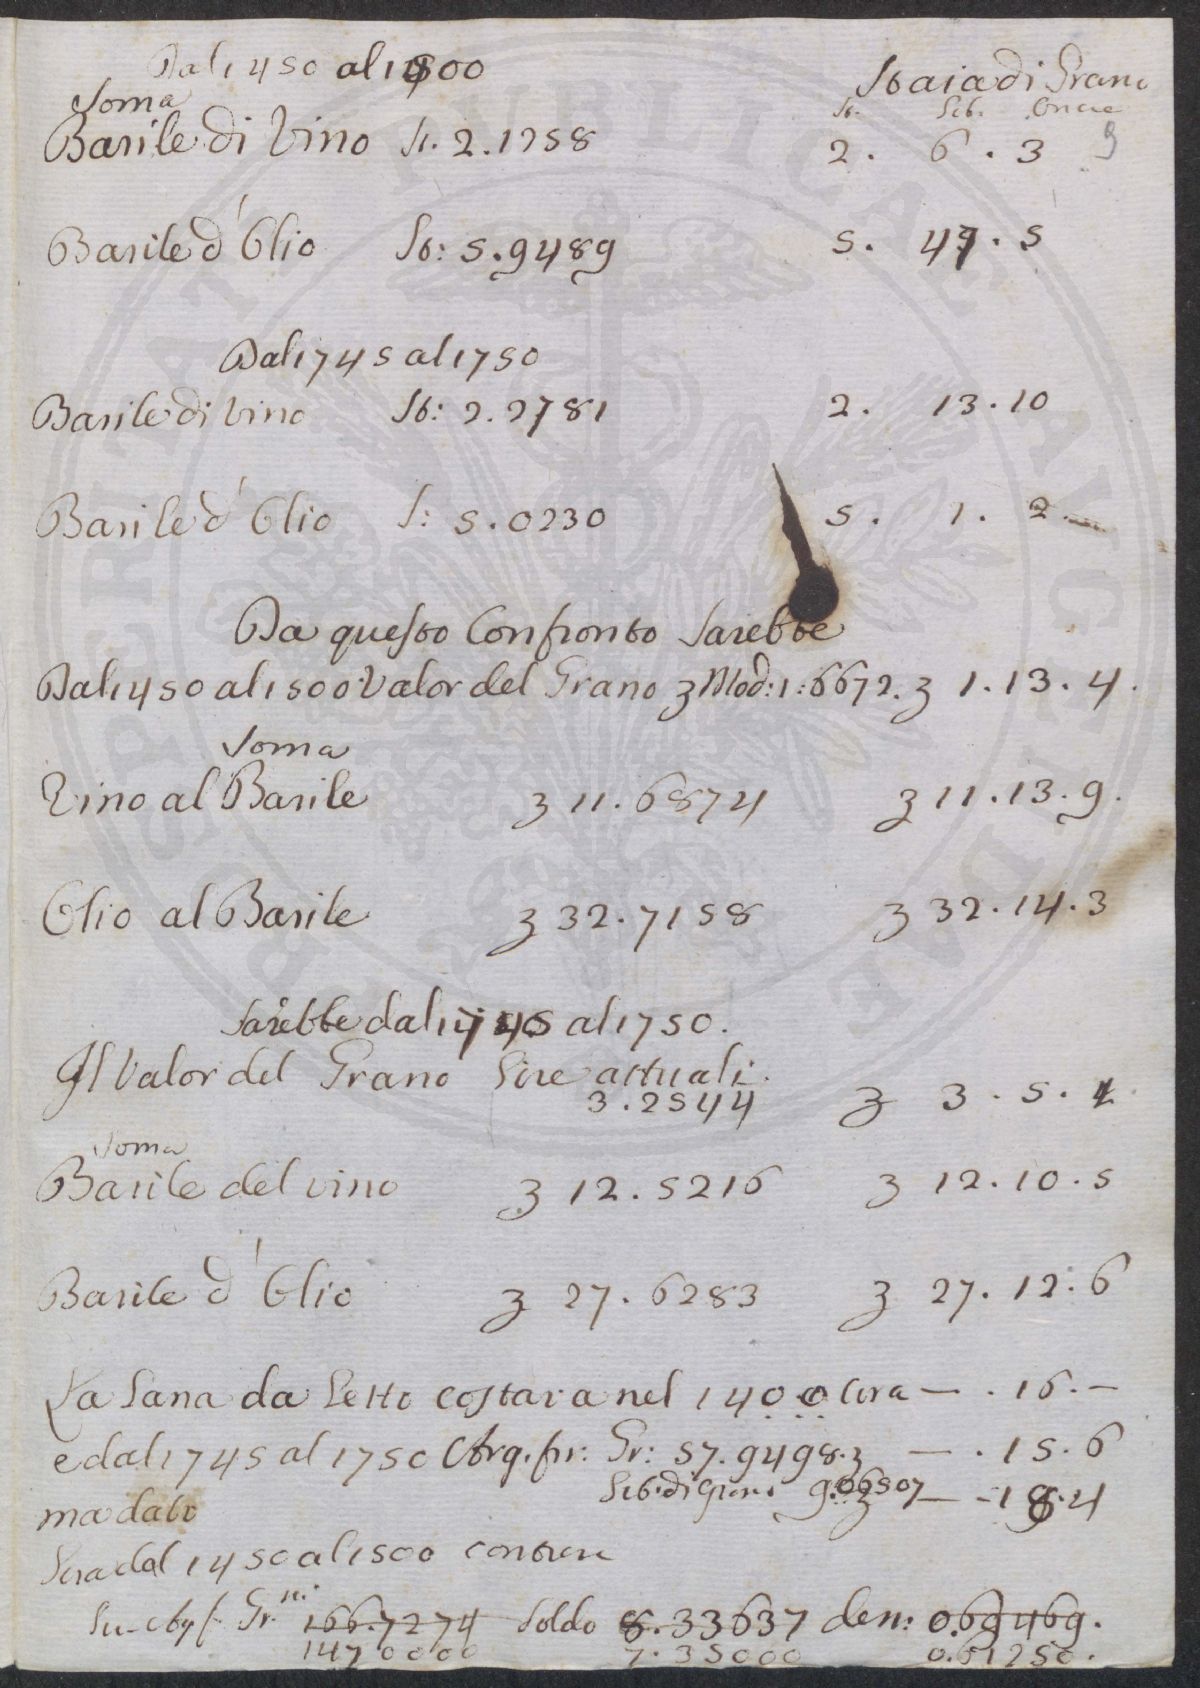 Dal 1450 al 1500
Staia di Grano
Soma
St. Lib. Oncie
Barile di Vino St. 2.1258 2. 6. 3
Barile d'Olio St: 5.9489 5. 47. 5
Dal 1745 al 1750
Barile di Vino St: 2.2781 2. 13. 10
Barile d'Olio S: 5.0230 5. 1. 2
Da questo Confronto Sarebbe
Dal 1450 al 1500 Valor del Grano £ Mod: 1:6672. £ 1. 13. 4.
Soma
Vino al Barile £ 11.6874 £ 11. 13. 9.
Olio al Barile £ 32.7158 £ 32. 14. 3
Sarebbe dal 1745 al 1750.
Il Valor del Grano Lire attuali.
3.2544 £ 3. 5. 1
Soma
Barile del vino £ 12.5216 £ 12. 10. 5
Barile d'Olio £ 27.6283 £ 27. 12. 6
La Lana da Letto costava nel 1400 Cira — . 16. —
e dal 1745 al 1750 Arg. fin: Gr: 57.9498. £ — . 15. 6
Lib. di Grano 9.06507 — - 18. 4
ma dato
Lira dal 1450 al 1500 contene
Gr.ni 166.7274 Soldo 8.33637 den: 0.69469.
1470000 7.35000 0.61250.
PUBLICAE